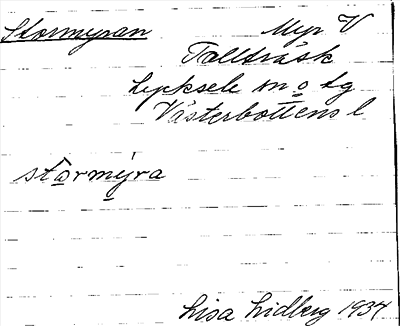 Stormyran Myr V
Tallträsk
Lycksele sn o tg
Västerbottens l
stormýra
Lisa Lidberg 1934